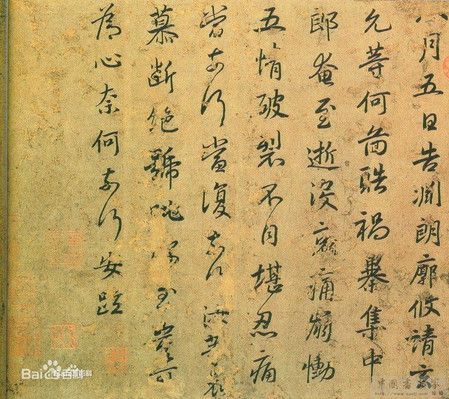 八月五日告淵朗廓攸靖玄
允等何圖酷禍暴集中
郎奄至逝沒哀痛崩慟
五情破裂不自堪忍痛
當奈何當復奈何汝等哀
慕斷絕號咷深至豈可
為心奈何奈何安疏
Bai百科